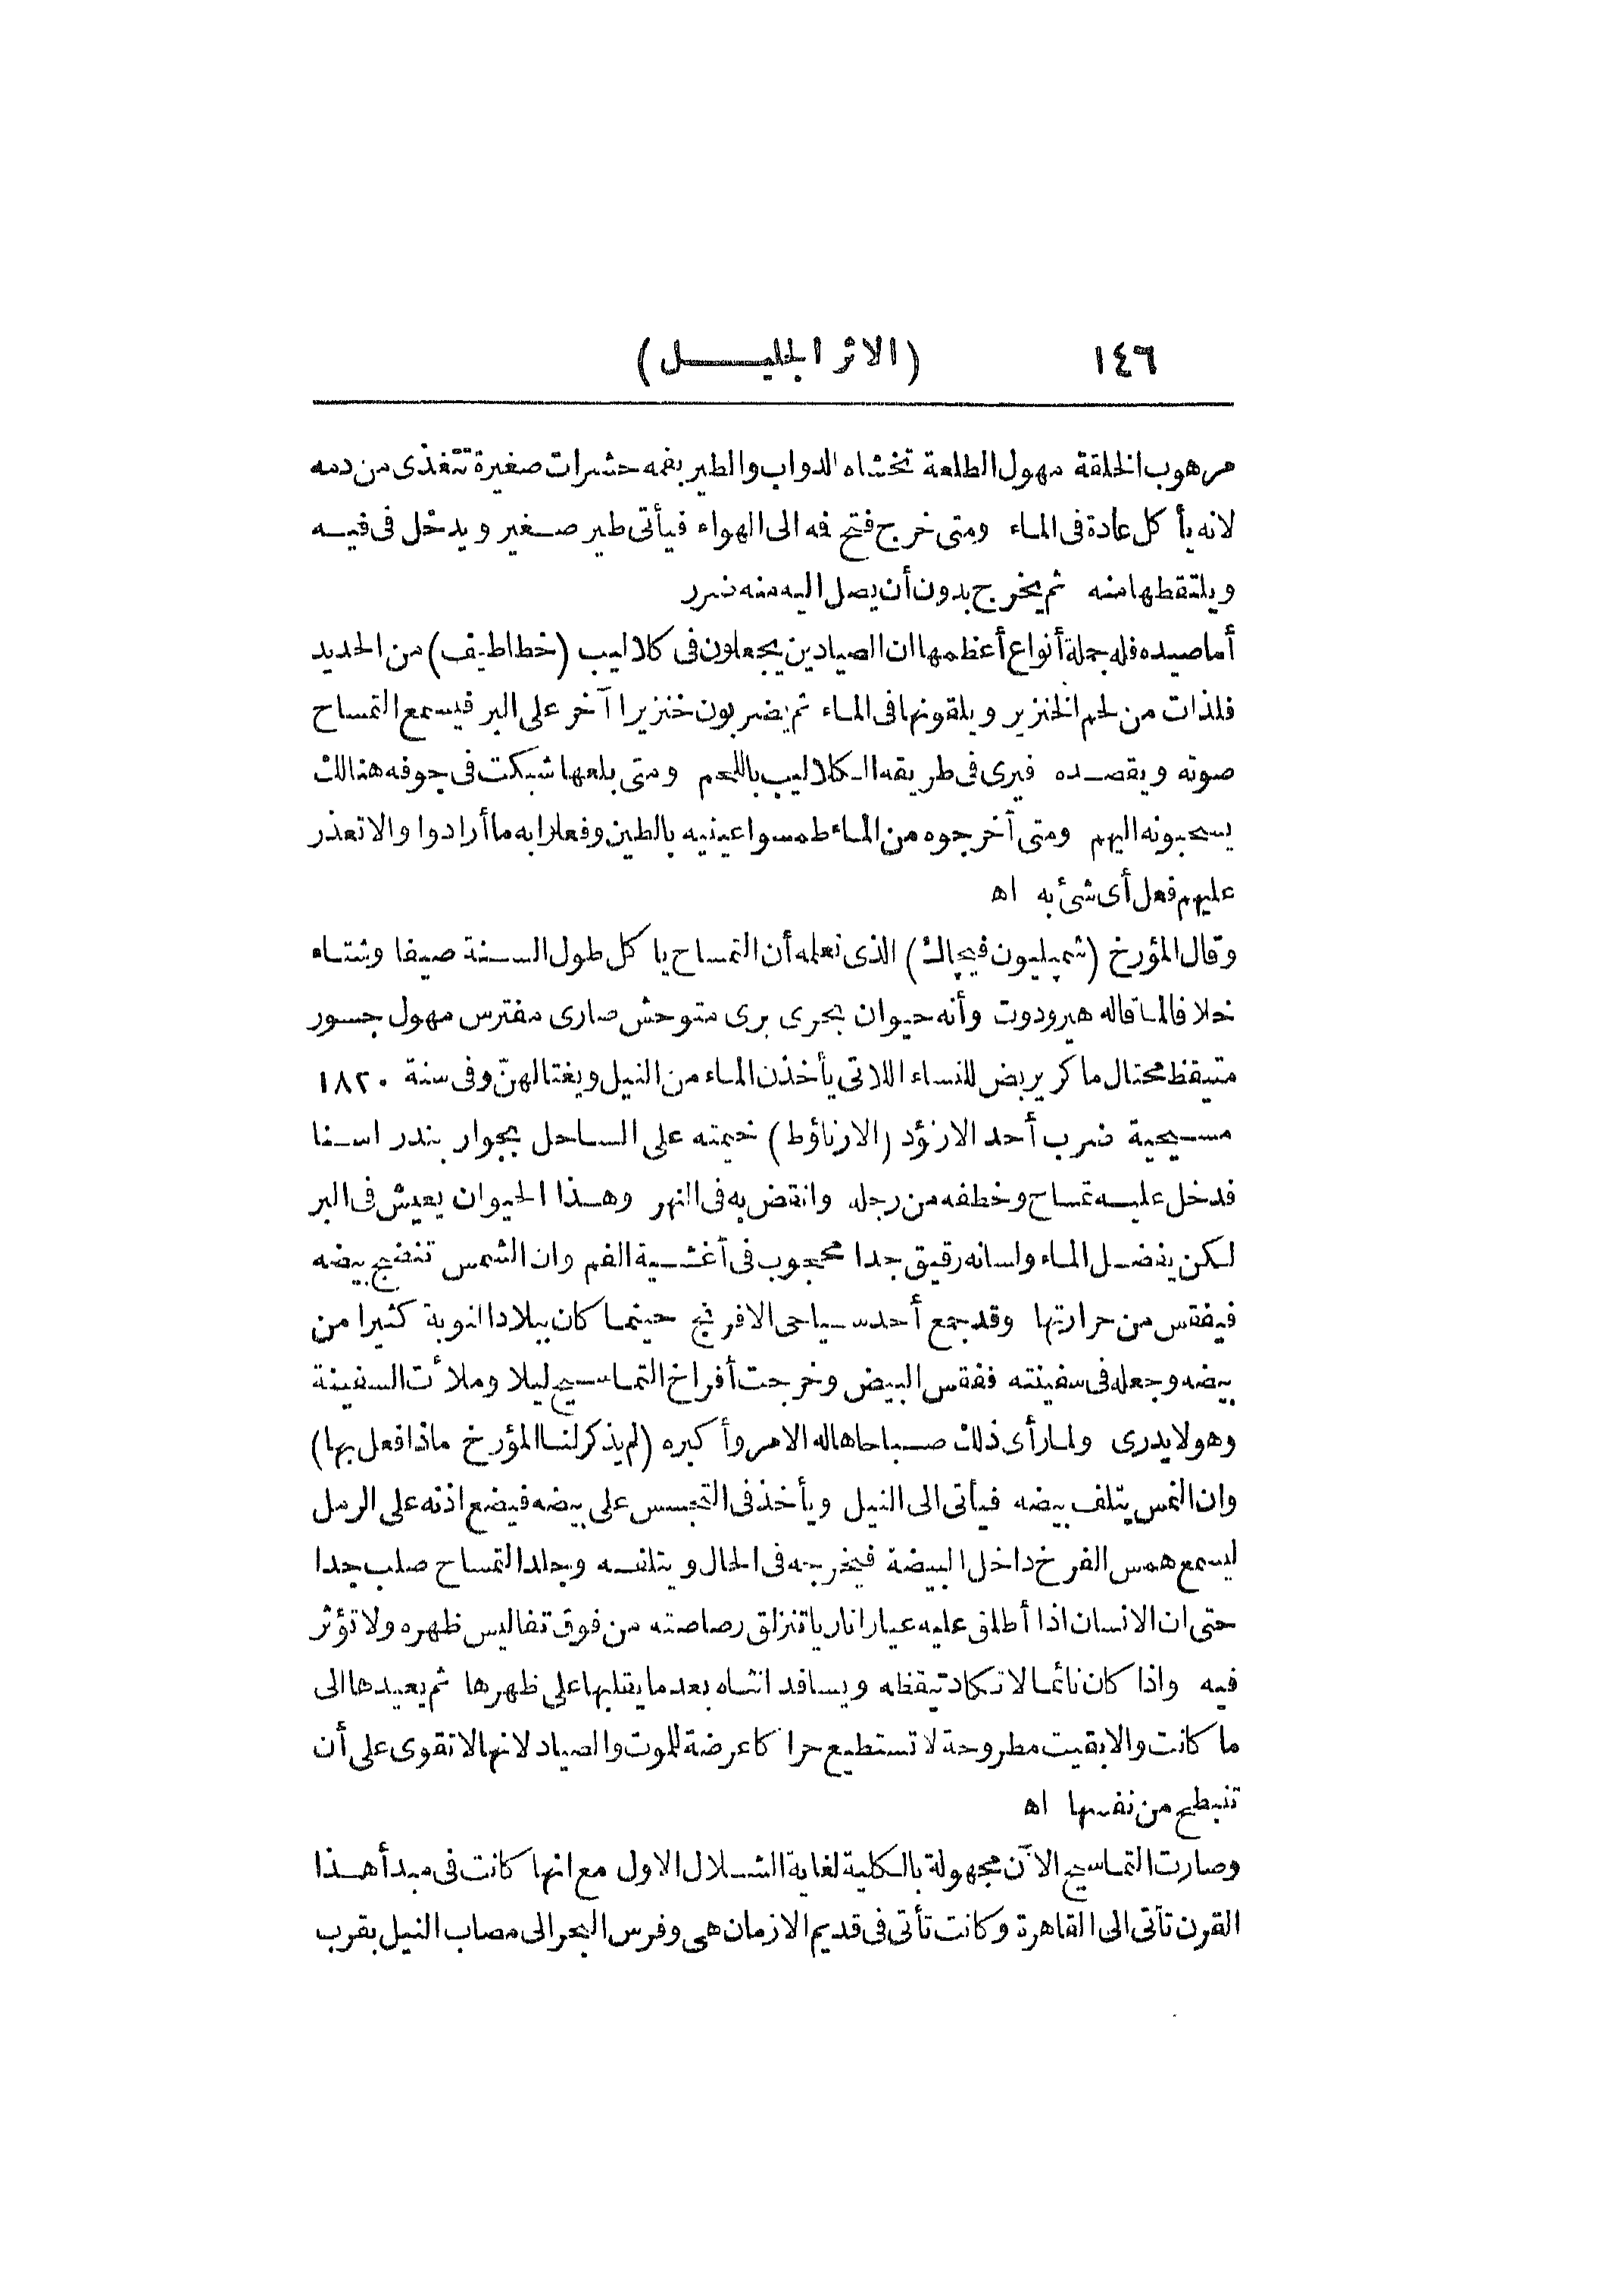 ١٤٦ (الاثر الجليل)
مرهوب الخلقة مهول الطلعة تخشاه الدواب والطير بفمه حشرات صغيرة تتغذى من دمه
لانه يأكل عادة فى الماء ومتى خرج فتح فه الى الهواء فيأتى طير صغير ويدخل فى فيه
ويلتقطها منه ثم يخرج بدون أن يصل اليه منه ضرر
أما صيده فله جملة أنواع أعظمها ان الصيادين يجعلون فى كلاليب (خطاطيف) من الحديد
فلذات من لحم الخنزير ويلقونها فى الماء ثم يضربون خنزيرا آخر على البر فيسمع التمساح
صوته ويقصده فيرى فى طريقه الكلاليب باللحم ومتى بلعها شبكت فى جوفه هنالك
يسحبونه اليهم ومتى أخرجوه من الماء طمسوا عينيه بالطين وفعلوا به ما أرادوا والا تعذر
عليهم فعل أى شئ به اه
وقال المؤرخ (شمپليون فيچاك) الذى نعلمه أن التمساح يا كل طول السنة صيفا وشتاء
خلافا لما قاله هيرودوت وأنه حيوان بحرى برى متوحش صارى مفترس مهول جسور
متيقظ محتال ماكر يربض للنساء اللاتى يأخذن الماء من النيل ويغتالهنّ وفى سنة ١٨٢٠
مسيحية ضرب أحد الارنؤد (الارناؤط) خيمته على الساحل بجوار بندر اسنا
فدخل عليه تمساح وخطفه من رجله وانقض به فى النهر وهذا الحيوان يعيش فى البر
لكن يفضل الماء ولسانه رقيق جدا محجوب فى أغشية الفم وان الشمس تنضج بيضه
فيفقس من حرارتها وقد جمع أحد سياحى الافرنج حينما كان ببلاد النوبة كثيرا من
بيضه وجعله فى سفينته ففقس البيض وخرجت أفراخ التماسيح ليلا وملأت السفينة
وهو لا يدرى ولما رأى ذلك صباحا هاله الامر وأكبره (لم يذكر لنا المؤرخ ماذا فعل بها)
وان النمس يتلف بيضه فيأتى الى النيل ويأخذ فى التجسس على بيضه فيضع اذنه على الرمل
ليسمع همس الفرخ داخل البيضة فيخرجه فى الحال ويتلفه وجلد التمساح صلب جدا
حتى ان الانسان اذا أطلق عليه عيارا ناريا تنزلق رصاصته من فوق تفاليس ظهره ولا تؤثر
فيه واذا كان نائما لا تكاد تيقظه ويسافد انثاه بعد ما يقلبها على ظهرها ثم يعيدها الى
ما كانت والا بقيت مطروحة لا تستطيع حراكا عرضة للموت والصياد لانها لا تقوى على أن
تنبطح من نفسها اه
وصارت التماسيح الآن مجهولة بالكلية لغاية الشلال الاول مع انها كانت فى مبدأ هذا
القرن تأتى الى القاهرة وكانت تأتى فى قديم الازمان هى وفرس البحر الى مصاب النيل بقرب